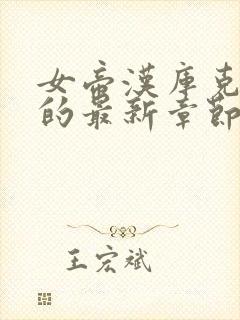 女帝漢庫克
的最新章節
王宏斌